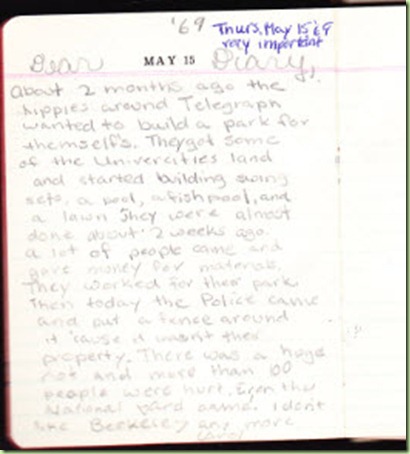 '69 Thurs. May 15 '69
very important
Dear MAY 15 Diary,
About 2 months ago the
hippies around Telegraph
wanted to build a park for
themself's. They got some
of the Univercities land
and started building swing
sets, a pool, a fishpool, and
a lawn They were almost
done about 2 weeks ago.
a lot of people came and
gave money for materials.
They worked for their park
Then today the Police came
and put a fence around
it 'cause it wasn't their
property. There was a huge
riot and more than 100
people were hurt. Even the
National gard came. I don't
like Berkeley any more
Carol